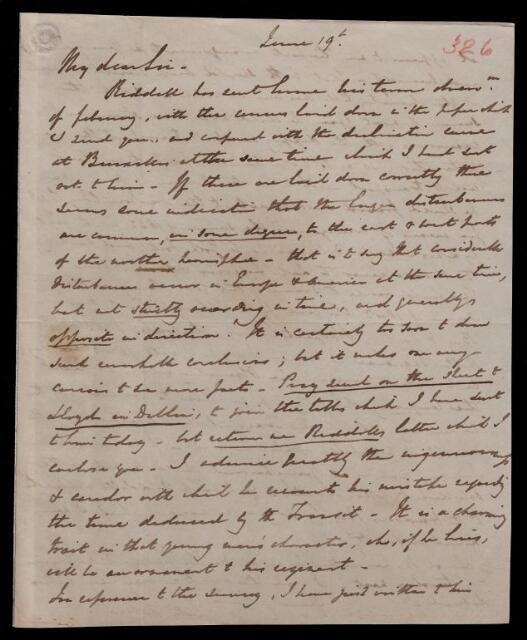 June 19th
326
My dear Sir -
Riddell has sent home his term observns
of february, with the curves laid down in the paper which
I send you, and compared with the declination curve
at Brussels at the same time which I had sent
out to him - If these are laid down correctly there
seems some indication that the larger disturbances
are common, in some degree, to the east & west parts
of the northern hemisphere - that is to say that considerable
disturbances occur in Europe & America at the same time,
but not strictly according in time, and generally
opposite in direction. It is certainly too soon to draw
such conclusions; but it makes one very
curious to see more facts - Pray send on the sheet to
Lloyd in Dublin, to join the others which I have sent
to him today - but return me Riddell's letter which I
enclose you - I admire greatly the ingenuousness
& candor with which he recounts his mistake regarding
the time deduced by the Transit - It is a charming
trait in that young man's character, who, if he lives,
will be an ornament to his regiment -
In reference to the survey, I have just written to him